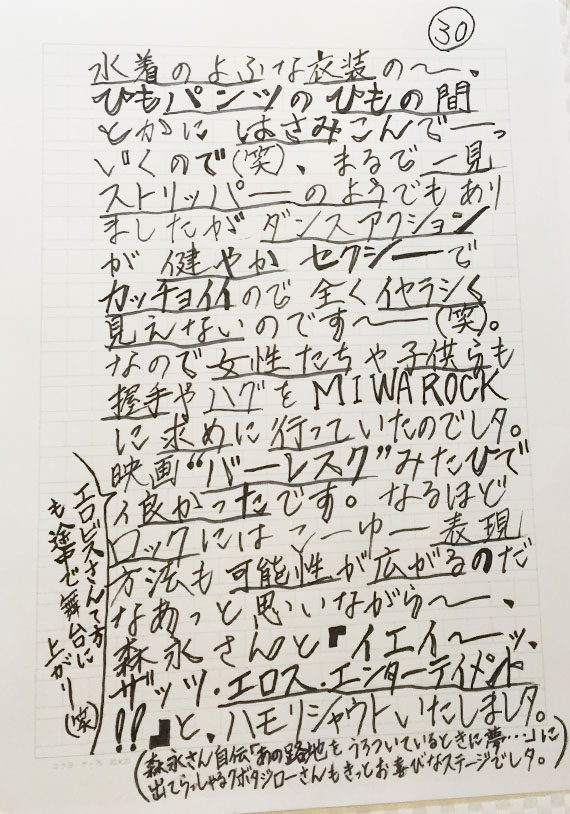 30
水着のよふな衣装の〜、
ひもパンツのひもの間
とかにはさみこんで―っ
いくので(笑)、まるで一見
ストリッパーのようでもあり
ましたがダンスアクション
が健やかセクシーで
カッチョイイので全くイヤラシく
見えないのです〜―(笑)。
なので女性たちや子供らも
握手やハグをMIWAROCK
に求めに行っていたのでしタ。
映画“バーレスク”みたひで
イ良かったです。なるほど
ロックにはこーゆー表現
方法も可能性が広がるのだ
なあっと思いながら〜―、
森永さんと『イエイ〜ッ、
ザッツ・エロス・エンターテイメント
!!』と、ハモリシャウトいたしましタ。
(森永さん自伝「あの路地をうろついているときに夢…」に
出てらっしゃるクボタジローさんもきっとお喜びなステージでしタ。)
エロビスさんて方
も途中で舞台に
上がり(笑)